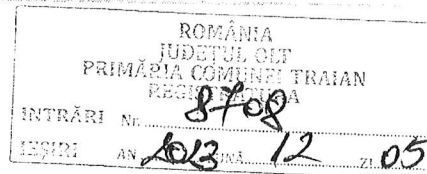 ROMÂNIA
JUDEŢUL OLT
PRIMĂRIA COMUNEI TRAIAN
REGISTRATURA
INTRĂRI Nr. 8708
IEŞIRI AN 2023 LUNĂ 12 ZI 05